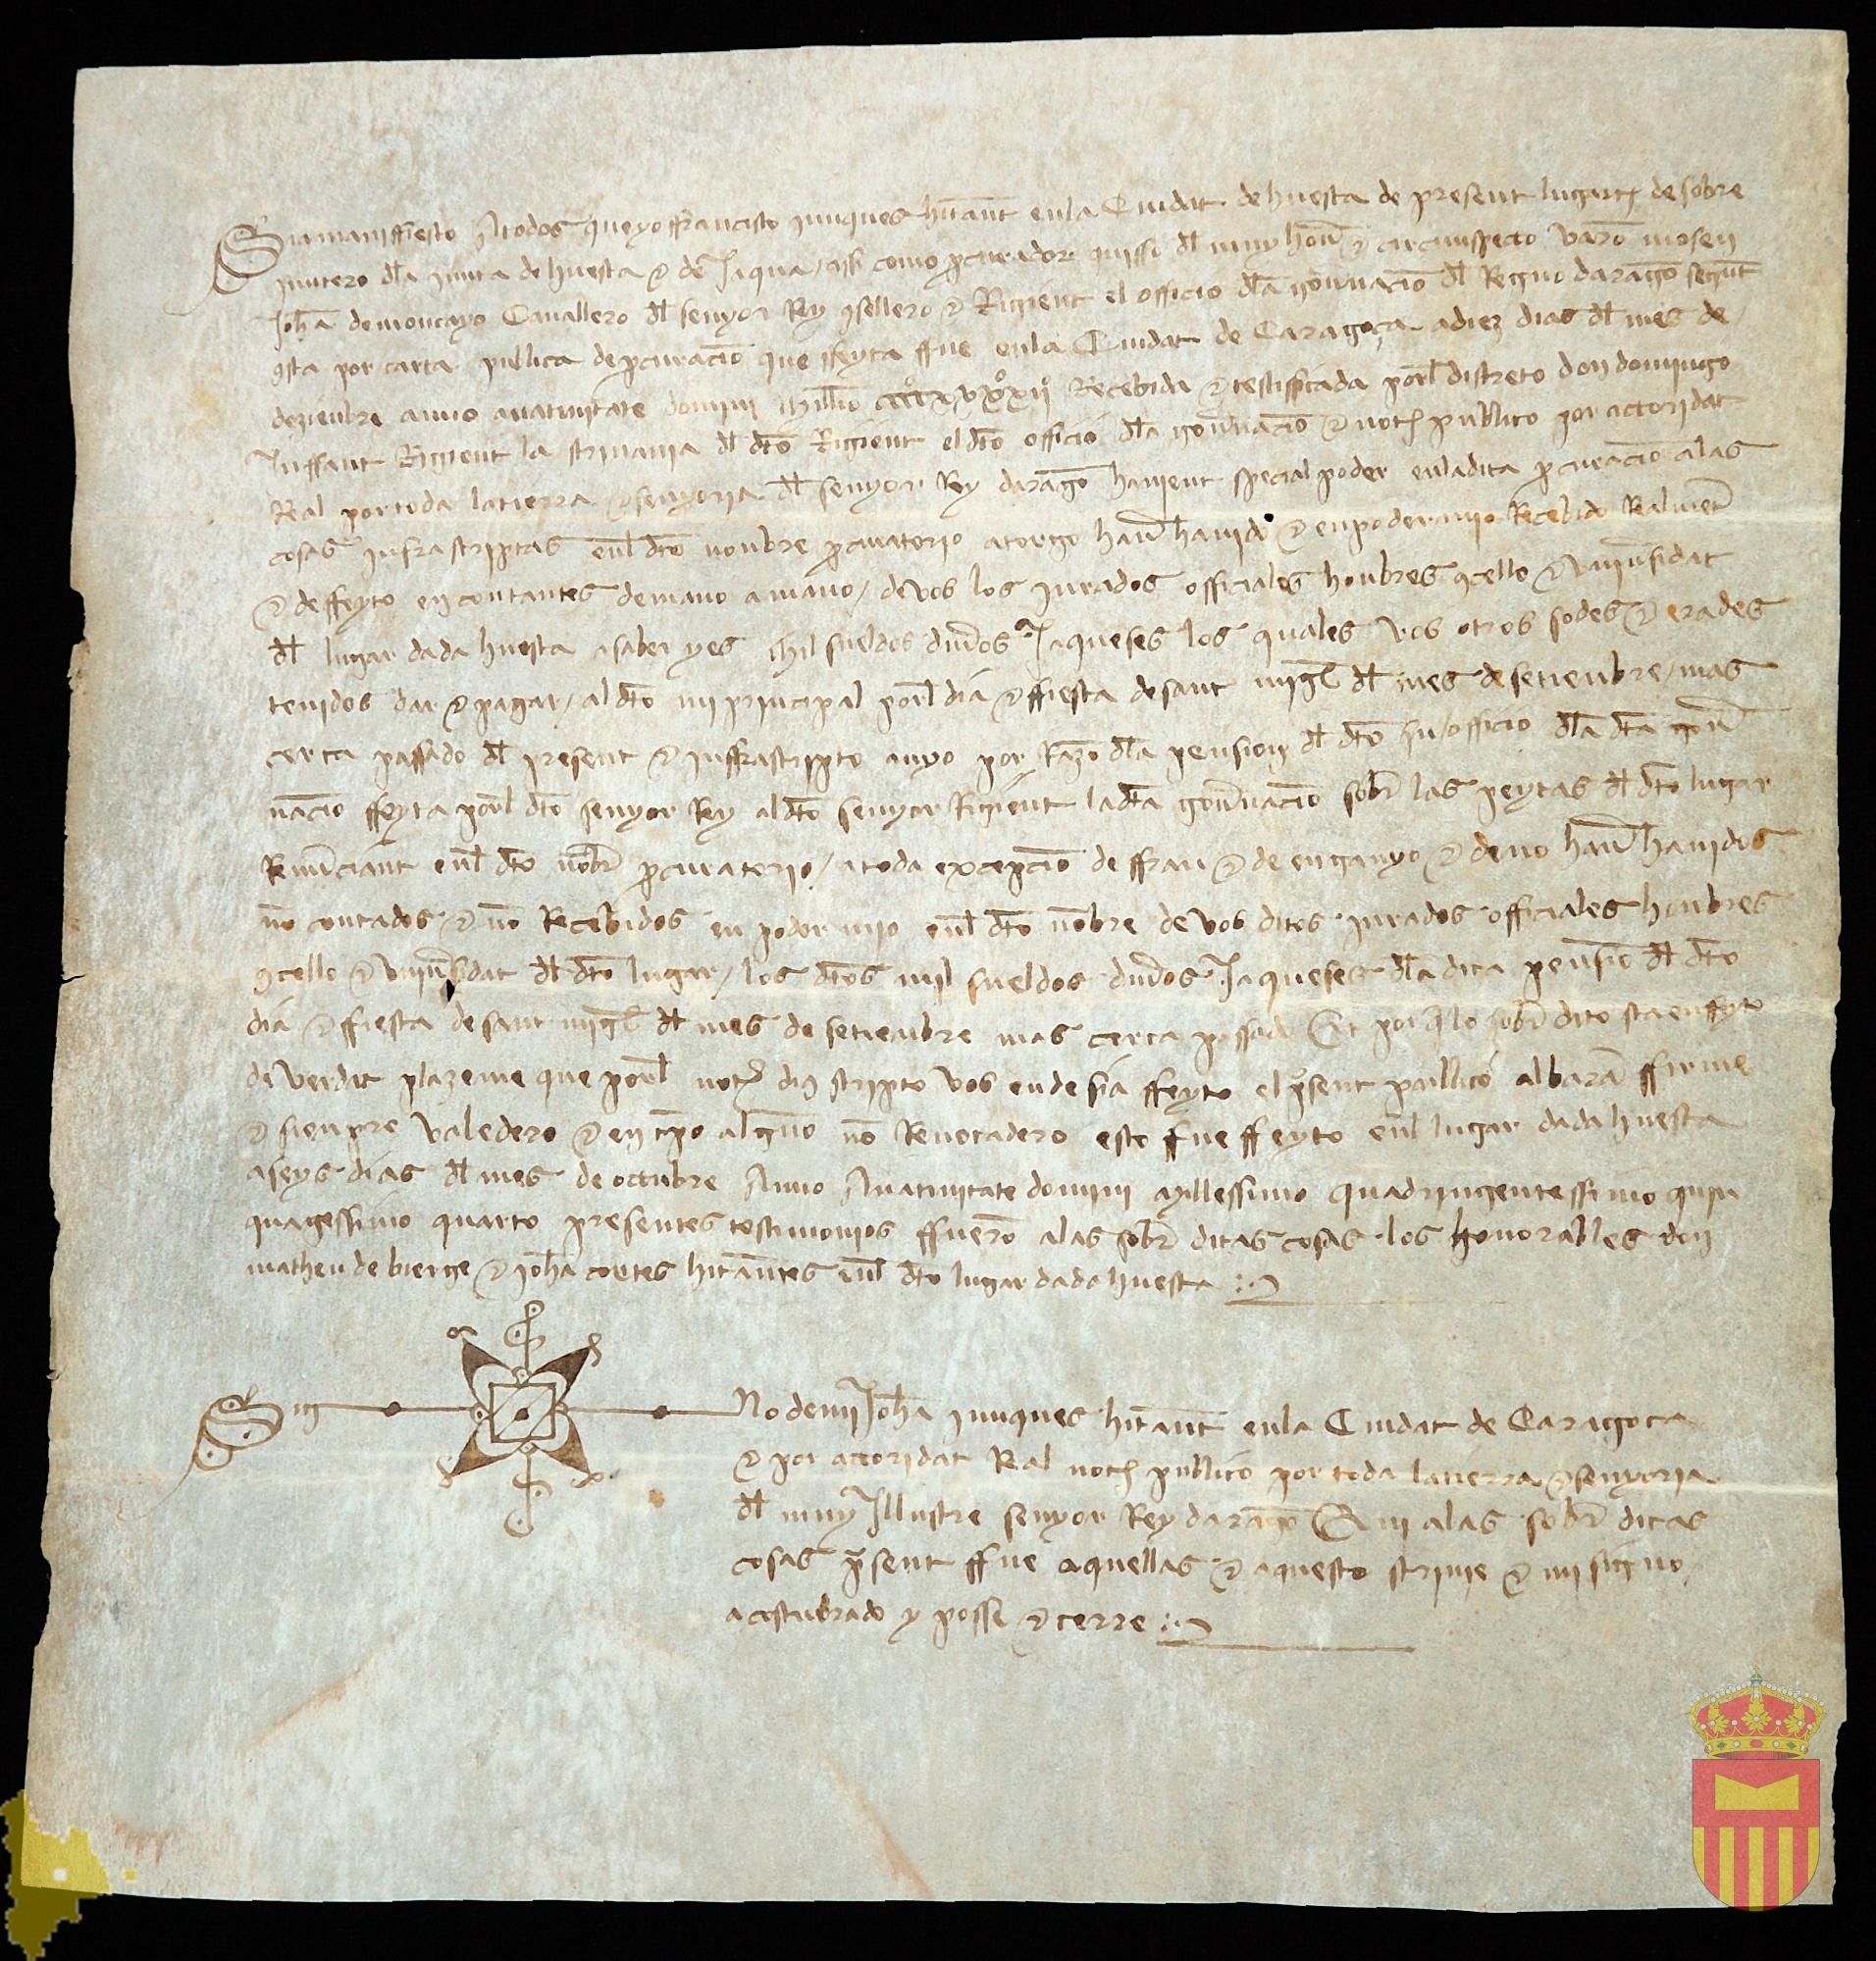 Sia maniffiesto A todos que yo ffrancisco junques hitant en la Ciudat de huesca de present lugart de sobre
juntero dla junta de huesca & de Jaqua / assi como pcurador quisso dl muy hon & circunspecto varo mosen
Joha de moncayo Cavallero dl senyor Rey 9sellero & Rigient el officio dla govnacio dl Regno darago segut
9sta por carta publica de pcuracio que ffeyta ffue en la Ciudat de Caragoça a diez dias dl mes de
dezienbre anno anativitate domini Recebida & testifficada porl discreto don domingo
Inffant Rigient la scrivania dl dto Rigient el dto officio dla govnacio & not publico por actoridat
Real por toda la tierra & senyoria dl senyor Rey darago havient special poder en la dita pcuracio a las
cosas infrascriptas enl dto nonbre pcuratorio atorgo hav havido & en poder mio Recebido Realmet
& de ffeyto en contantes de mano a mano / de vos los jurados officiales honbres 9cello & univsidat
dl lugar dada huesca a saber yes Mil sueldos divos Jaqueses los quales vos otros sodes & erades
tenidos dar & pagar / al dto mi principal porl dia & ffiesta de sant migl dl mes de setienbre / mas
cerca passado dl present & inffrascripto anyo por Razo dla pension dl dto su officio dla dta gov
nacio ffeyta porl dto senyor Rey al dto senyor Rigient la dta govnacio sobr las peytas dl dto lugar
Renuciant enl dto nobr pcuratorio / a toda excepcio de ffrau & de enganyo & de no hav havidos
no contados & no Recebidos en poder mio enl dto nobre de vos ditos jurados officiales honbres
9cello & univsidat dl dto lugar / los dtos mil sueldos divos Jaqueses dla dita pensio dl dto
dia & ffiesta de sant migl dl mes de setienbre mas cerca passado Et por q lo sobr dito sta en ffyto
de verdat plazeme que porl not dius scripto vos ende sia ffeyto el psent publico albara ffirme
& sienpre valedero & en tpo alguno no Revocadero esto fue ffeyto enl lugar dada huesca
a seys dias dl mes de octubre Anno Anativitate domini Millessimo quadringentessimo quin
quagessimo quarto presentes testimonios ffuero a las sobr ditas cosas los honorables don
matheu de bierge & Joha cortes hitantes enl dto lugar dada huesca
Sig No de mi Joha junques hitant en la Ciudat de Caragoca
& por actoridat Real not publico por toda la tierra & senyoria
dl muy Illustre senyor Rey darago Qui a las sobr ditas
cosas psent ffue aquellas & aquesto scrivie & mi signo
acostubrado y posse & cerre